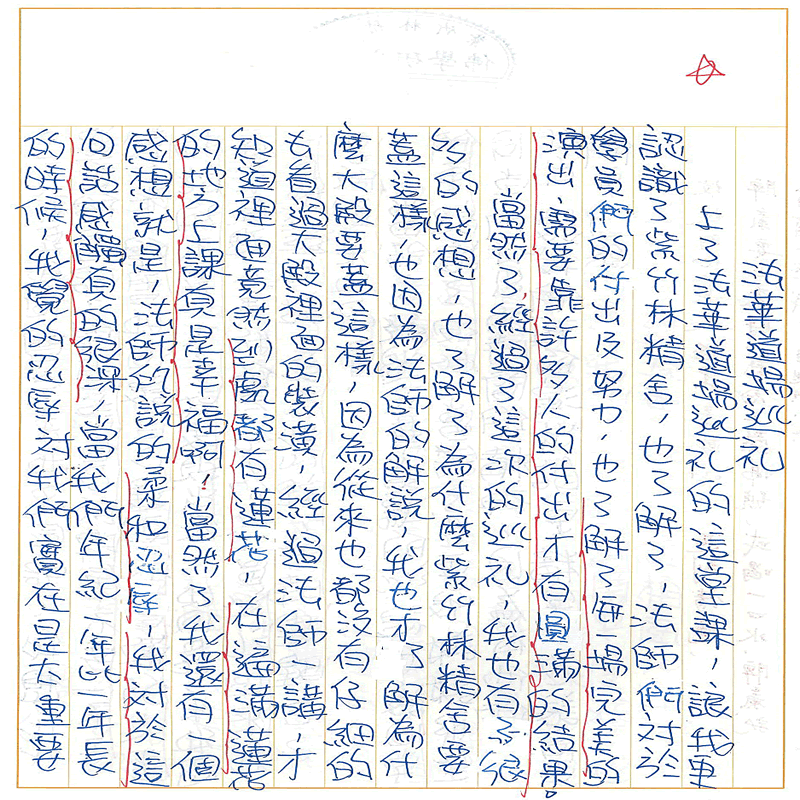 法華道場巡礼
上了法華道場巡礼的這堂課，讓我更
認識了紫竹林精舍，也了解了，法師們對於
學員們的付出及努力，也了解了每一場完美的
演出，需要靠許多人的付出才有圓滿的結果。
當然了，經過了這次的巡礼，我也有了很
多的感想，也了解了為什麼紫竹林精舍要
蓋這樣，也因為法師的解說，我也才了解為什
麼大殿要蓋這樣，因為從來也都沒有仔細的
去看過大殿裡面的裝潢，經過法師一講，才
知道裡面竟然到處都有蓮花，在遍滿蓮花
的地方上課真是幸福啊！當然了我還有一個
感想就是，法師的說的柔和忍辱，我對於這
句話感觸真的很深，當我們年紀一年比一年長
的時候，我覺的忍辱對我們實在是太重要